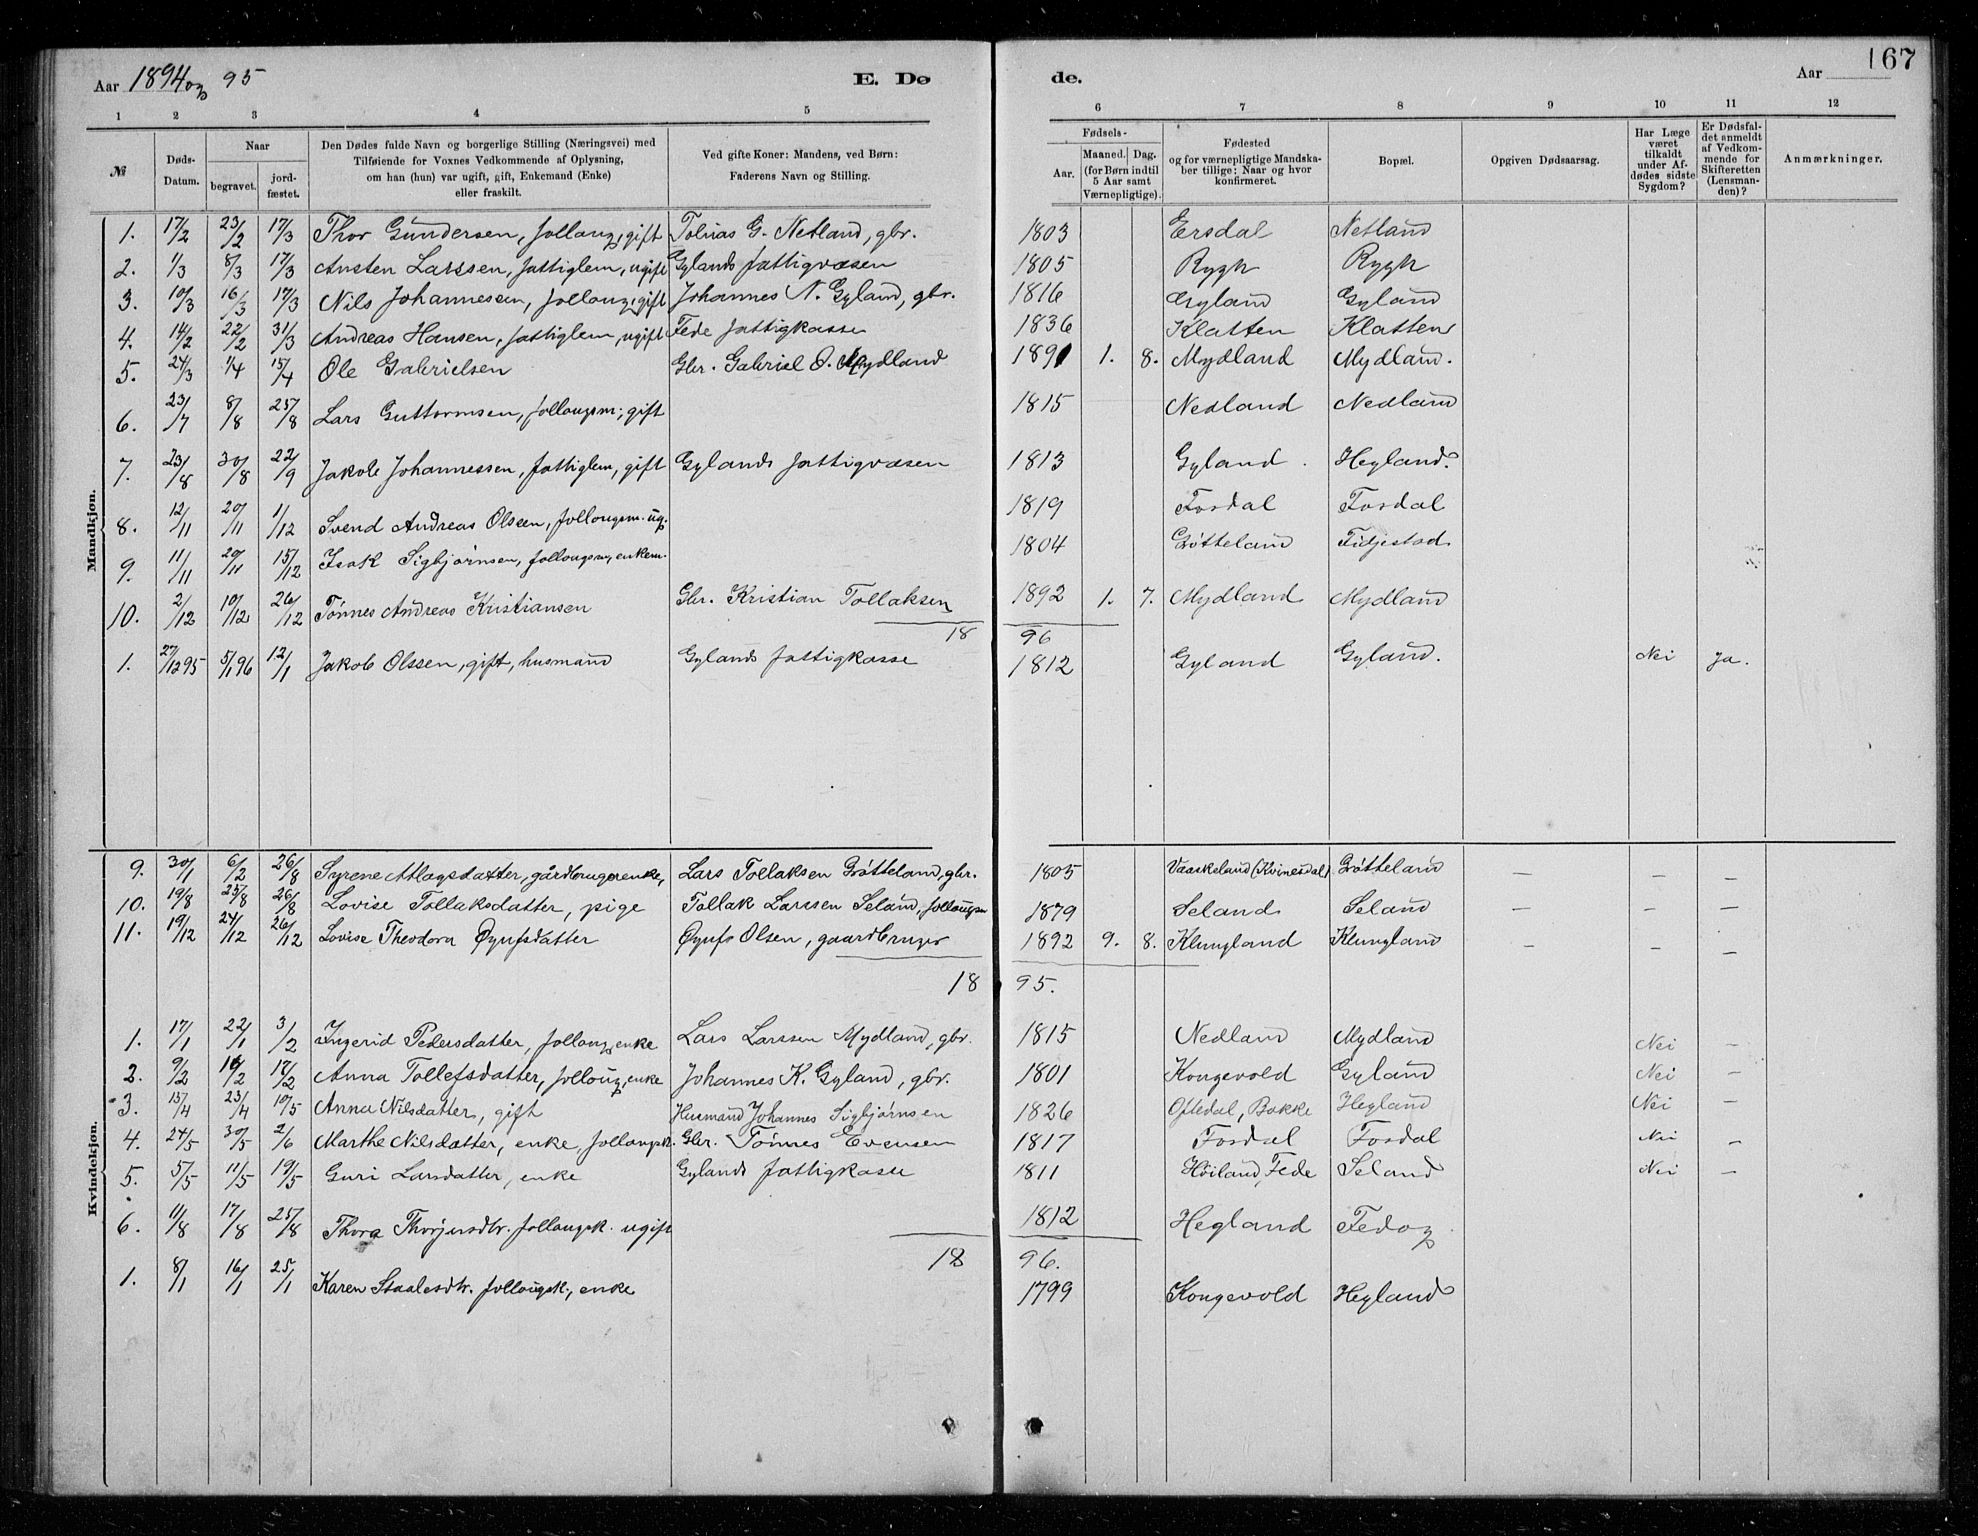 Aar 1894 og 95 E. Dø de. Aar 167
1 2 3 4 5 6 7 8 9 10 11 12
№ Døds-Datum. Naar begravet. jord-fæstet. Den Dødes fulde Navn og borgerlige Stilling (Næringsvei) med Tilføiende for Voxnes Vedkommende af Oplysning, om han (hun) var ugift, gift, Enkemand (Enke) eller fraskilt. Ved gifte Koner: Mandens, ved Børn: Faderens Navn og Stilling. Fødsels- Aar. Maaned. Dag. (for Børn indtil 5 Aar samt Værnepligtige). Fødested og for værnepligtige Mandska-ber tillige: Naar og hvor konfirmeret. Bopæl. Opgiven Dødsaarsag. Har Læge været tilkaldt under Af-dødes sidste Sygdom? Er Dødsfal-det anmeldt af Vedkom-mende for Skifteretten (Lensman-den)? Anmærkninger.
Mandkjøn.
1. 17/2 23/2 17/3 Thor Gundersen, follaug, gift Tobias G. Netland, gbr. 1803 Ersdal Netland
2. 1/3 8/3 17/3 Ansten Larssen, fattiglem, ugift Gylands fattigvæsen 1805 Rygh Rygh
3. 10/3 16/3 17/3 Nils Johannessen, follaug, gift Johannes N. Gyland, gbr. 1816 Gyland Gyland
4. 14/2 22/2 31/3 Andreas Hansen, fattiglem, ugift Fede fattigkasse 1836 Klatten Klatten
5. 24/3 1/4 15/4 Ole Gabrielsen Gbr. Gabriel O. Mydland 1891 1. 8. Mydland Mydland.
6. 23/7 8/8 25/8 Lars Guttormsen, follaugsm; gift 1815 Nedland Nedland
7. 23/8 30/8 22/9 Jakob Johannessen, fattiglem, gift Gylands fattigvæsen 1813 Gyland. Hegland.
8. 12/11 20/11 1/12 Svend Andreas Olsen, follaugsm. ug. 1819 Fosdal Fosdal
9. 11/11 20/11 15/12 Isak Sigbjørnsen, follaugsm, enkem. 1804 Gøtteland Fidjestad.
10. 2/12 10/12 26/12 Tønnes Andreas Kristiansen Gbr. Kristian Tollaksen 1892 1. 7. Mydland Mydland
18 96
1. 27/12 95 5/1 96 12/1 Jakob Olssen, gift, husmand Gylands fattigkasse 1812 Gyland Gyland. Nei Ja.
Kvindekjøn.
9. 30/1 6/2 26/8 Syrene Atlagsdatter, gårdbrugerenke, Lars Tollaksen Gøtteland, gbr. 1805 Vaaskeland (Kvinesdal) Gøtteland — — —
10. 19/8 25/8 26/8 Lovise Tollaksdatter, pige Tollak Larssen Seland, follaugsm 1879 Seland Seland — — —
11. 19/12 24/12 26/12 Lovise Theodora Øyufsdatter Øyuf Olsen, gaardbruger 1892 9. 8. Klungland Klungland — — —
18 95.
1. 17/1 22/1 3/2 Ingerid Pedersdatter, follaug, enke Lars Larssen Mydland, gbr. 1815 Nedland Mydland Nei —
2. 9/2 16/2 17/2 Anna Tollefsdatter, follaug, enke Johannes K. Gyland, gbr. 1801 Kongevold Gyland Nei —
3. 15/4 23/4 10/5 Anna Nilsdatter, gift Husmand Johannes Sigbjørnsen 1826 Oftedal, Bakke Hegland Nei —
4. 24/5 30/5 2/6 Marthe Nilsdatter, enke, follaugsk. Gbr. Tønnes Evensen 1817 Fosdal Fosdal Nei —
5. 5/5 11/5 19/5 Guri Larsdatter, enke Gylands fattigkasse 1811 Høiland, Fede Seland Nei —
6. 11/8 17/8 25/8 Thora Thorjusdtr. follaugsk. ugift 1812 Hegland Fedog
18 96.
1. 8/1 16/1 25/1 Karen Staalesdtr. follaugsk., enke 1799 Kongevold Hegland